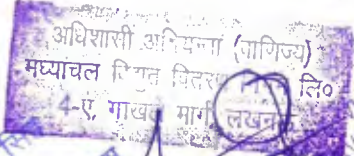 अधिशासी अभियन्ता (वाणिज्य)
मध्यांचल विद्युत वितरण लि०
4-ए, गोखले मार्ग, लखनऊ